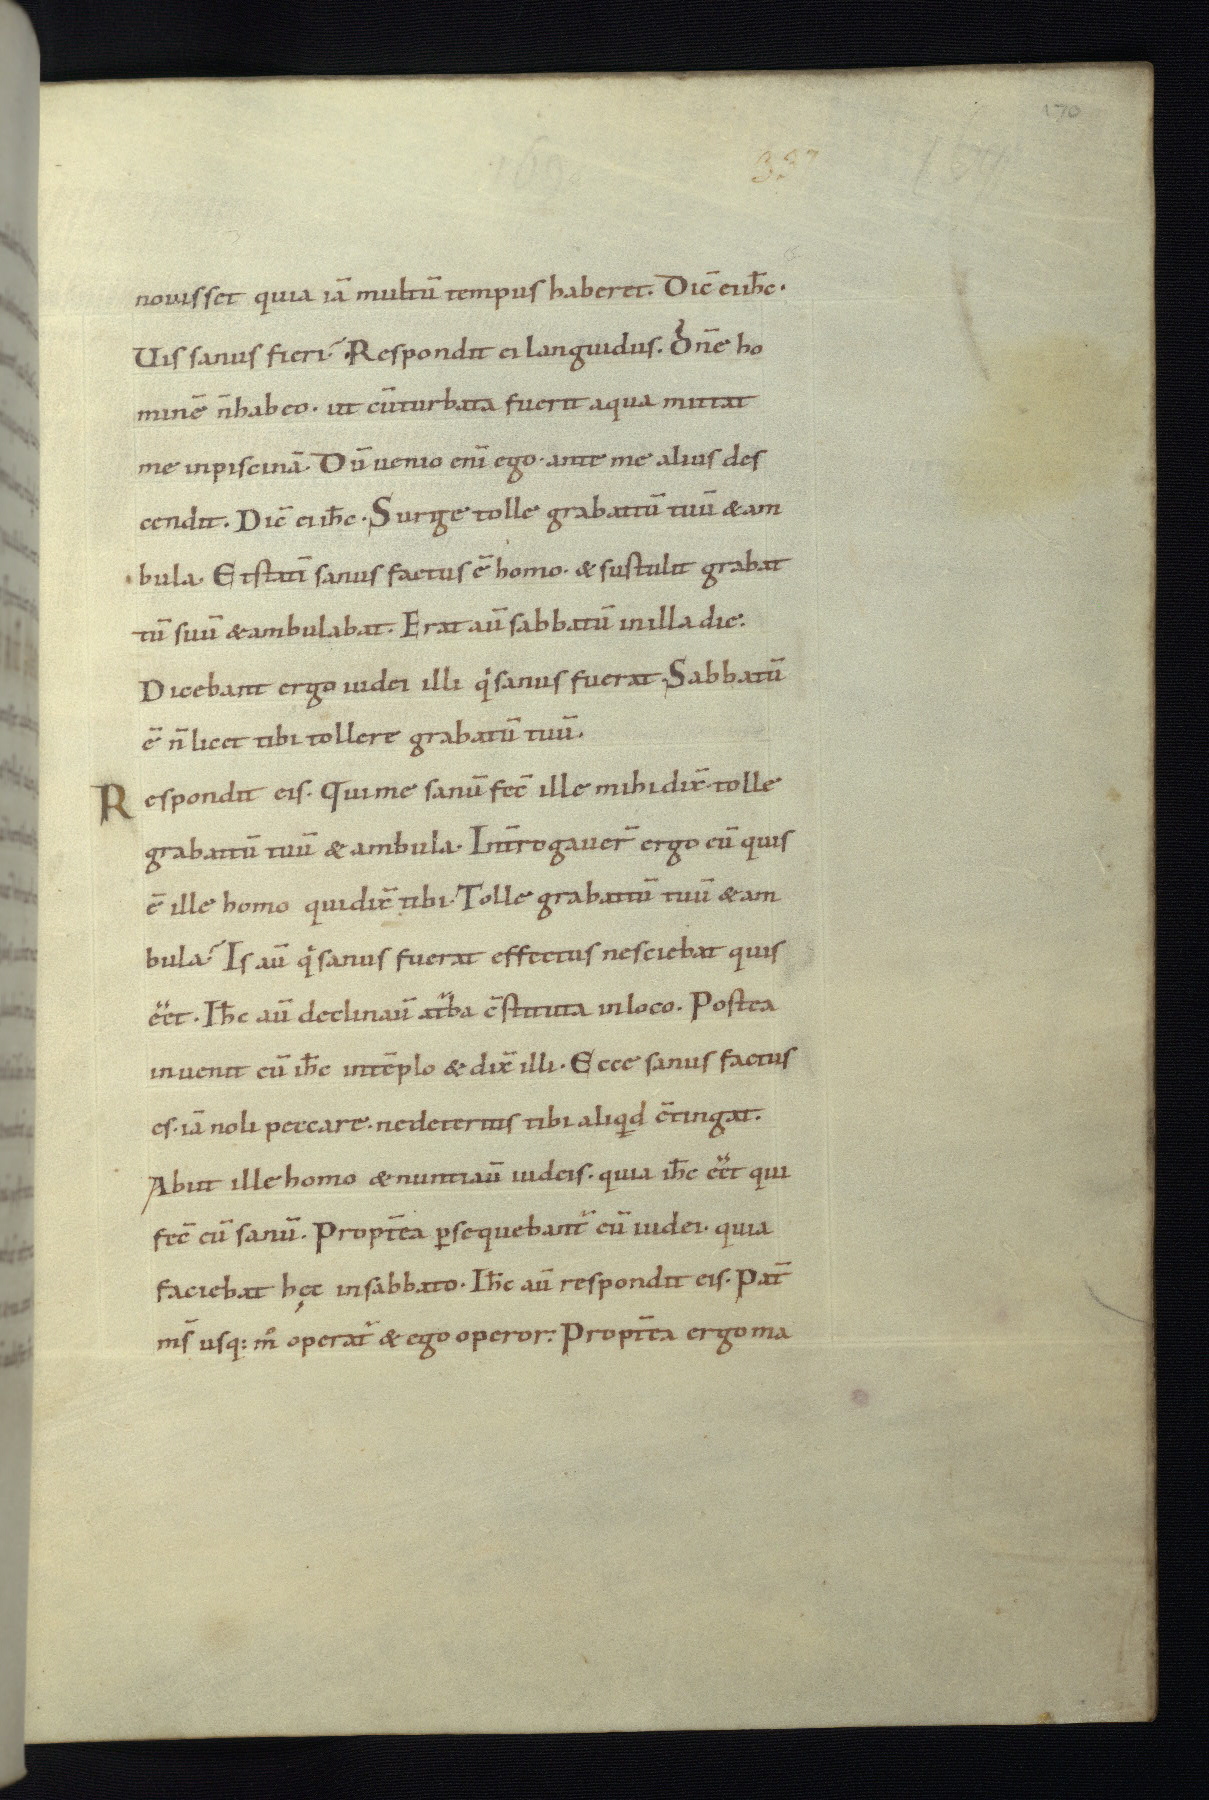 170
337
nouisset quia iā multū tempus haberet. Dic̄ ei ih̄c.
Uis sanus fieri? Respondit ei languidus. Dn̄e ho
minē n̄ habeo. ut cū turbata fuerit aqua mittat
me in piscinā. Dū uenio eni̅ ego. ante me alius des
cendit. Dic̄ ei ih̄c. Surge tolle grabattū tuū & am
bula. Et stati̅ sanus factus ē homo. & sustulit grabat
tū suū & ambulabat. Erat aū sabbatū in illa die.
Dicebant ergo iudei illi qͥ sanus fuerat. Sabbatū
ē n̄ licet tibi tollere grabatū tuū.
Respondit eis. Qui me sanū fec̄ ille mihi dix̄. tolle
grabattū tuū & ambula. Int̄rogauer̄ ergo eū quis
ē ille homo qui dix̄ tibi. Tolle grabattū tuū & am
bula? Is aū qͥ sanus fuerat effectus nesciebat quis
eēt. Ih̄c aū declinau̅ a turba c̄stituta in loco. Postea
inuenit eū ih̄c in tēplo & dix̄ illi. Ecce sanus factus
es. iā noli peccare. ne deterius tibi aliqͥd c̄tingat.
Abiit ille homo & nuntiau̅ iudeis. quia ih̄c eēt qui
fec̄ eū sanū. Propt̄ea ꝑsequebant᷑ eū iudei. quia
faciebat hęc in sabbato. Ih̄c aū respondit eis. Pat̄
ms̄ usq: m̊ operat᷑ & ego operor: Propt̄ea ergo ma